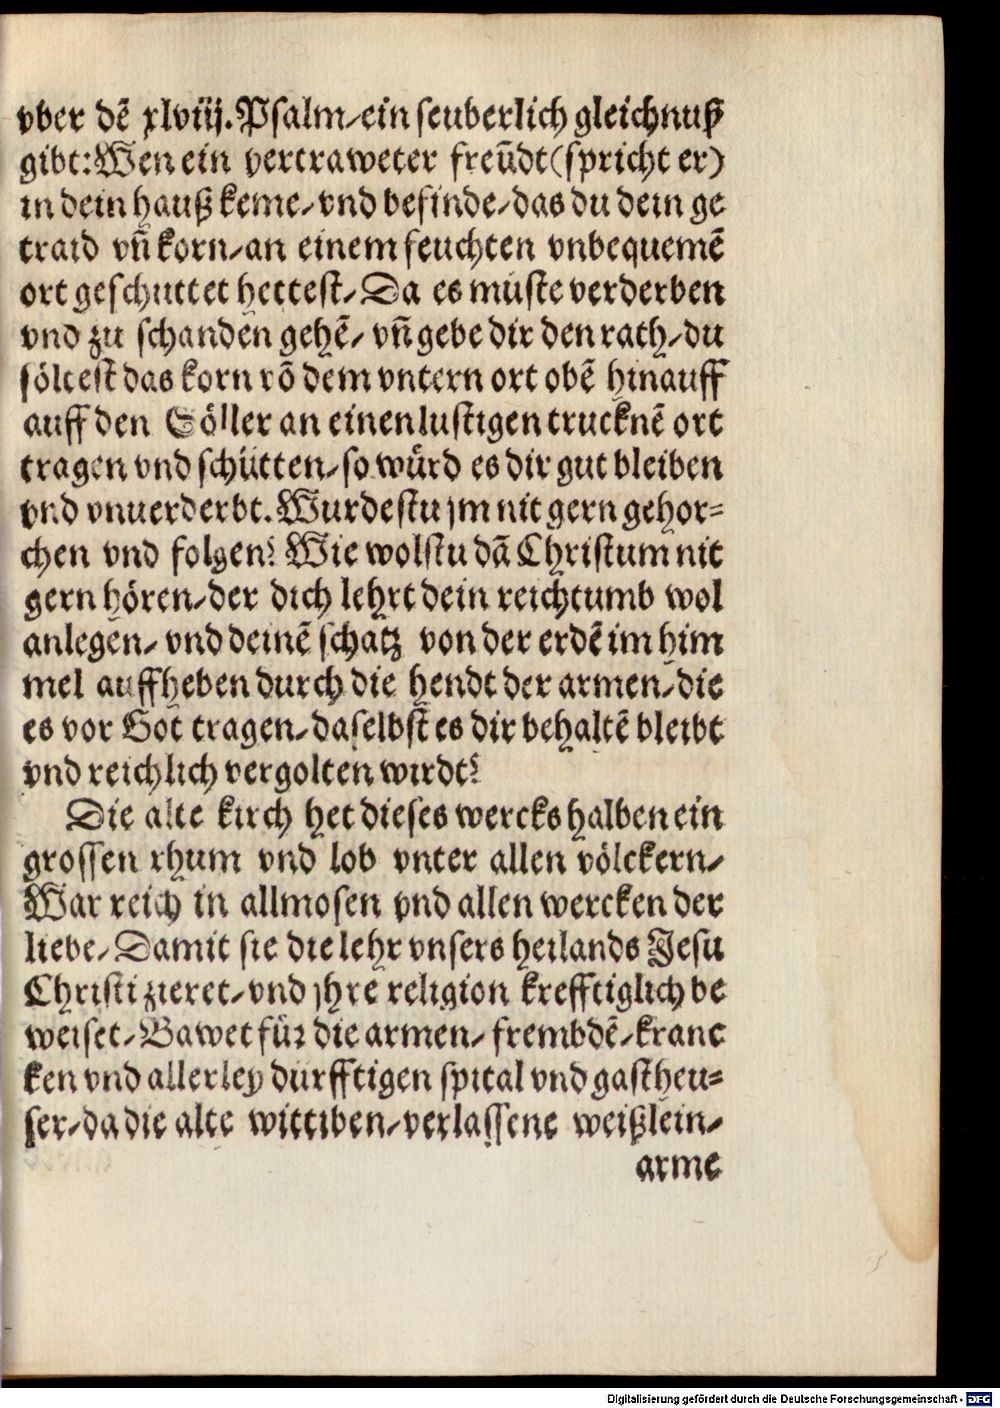 vber dē xlviij. Psalm/ein seuberlich gleichnuß
gibt: Wen ein vertraweter freūdt (spricht er)
in dein hauß keme/vnd befinde/das du dein ge
traid vñ korn/an einem feuchten vnbequemē
ort geschuttet hettest/Da es müste verderben
vnd zu schanden gehē/ vñ gebe dir den rath/du
söltest das korn võ dem vntern ort obē hinauff
auff den Söller an einen lustigen trucknē ort
tragen vnd schütten/so würd es dir gut bleiben
vnd vnuerderbt. Wurdestu jm nit gern gehor=
chen vnd folgen? Wie wolstu dā Christum nit
gern hören/der dich lehrt dein reichtumb wol
anlegen/ vnd deinē schatz von der erdē im him
mel auffheben durch die hendt der armen/die
es vor Got tragen/daselbst es dir behaltē bleibt
vnd reichlich vergolten wirdt?
Die alte kirch het dieses wercks halben ein
grossen rhum vnd lob vnter allen völckern/
War reich in allmosen vnd allen wercken der
liebe/ Damit sie die lehr vnsers heilands Jesu
Christi zieret/vnd jhre religion krefftiglich be
weiset/ Bawet für die armen/ frembdē/kranc
ken vnd allerley dürfftigen spital vnd gastheu=
ser/da die alte wittiben/verlassene weißlein/
arme
Digitalisierung gefördert durch die Deutsche Forschungsgemeinschaft - DFG